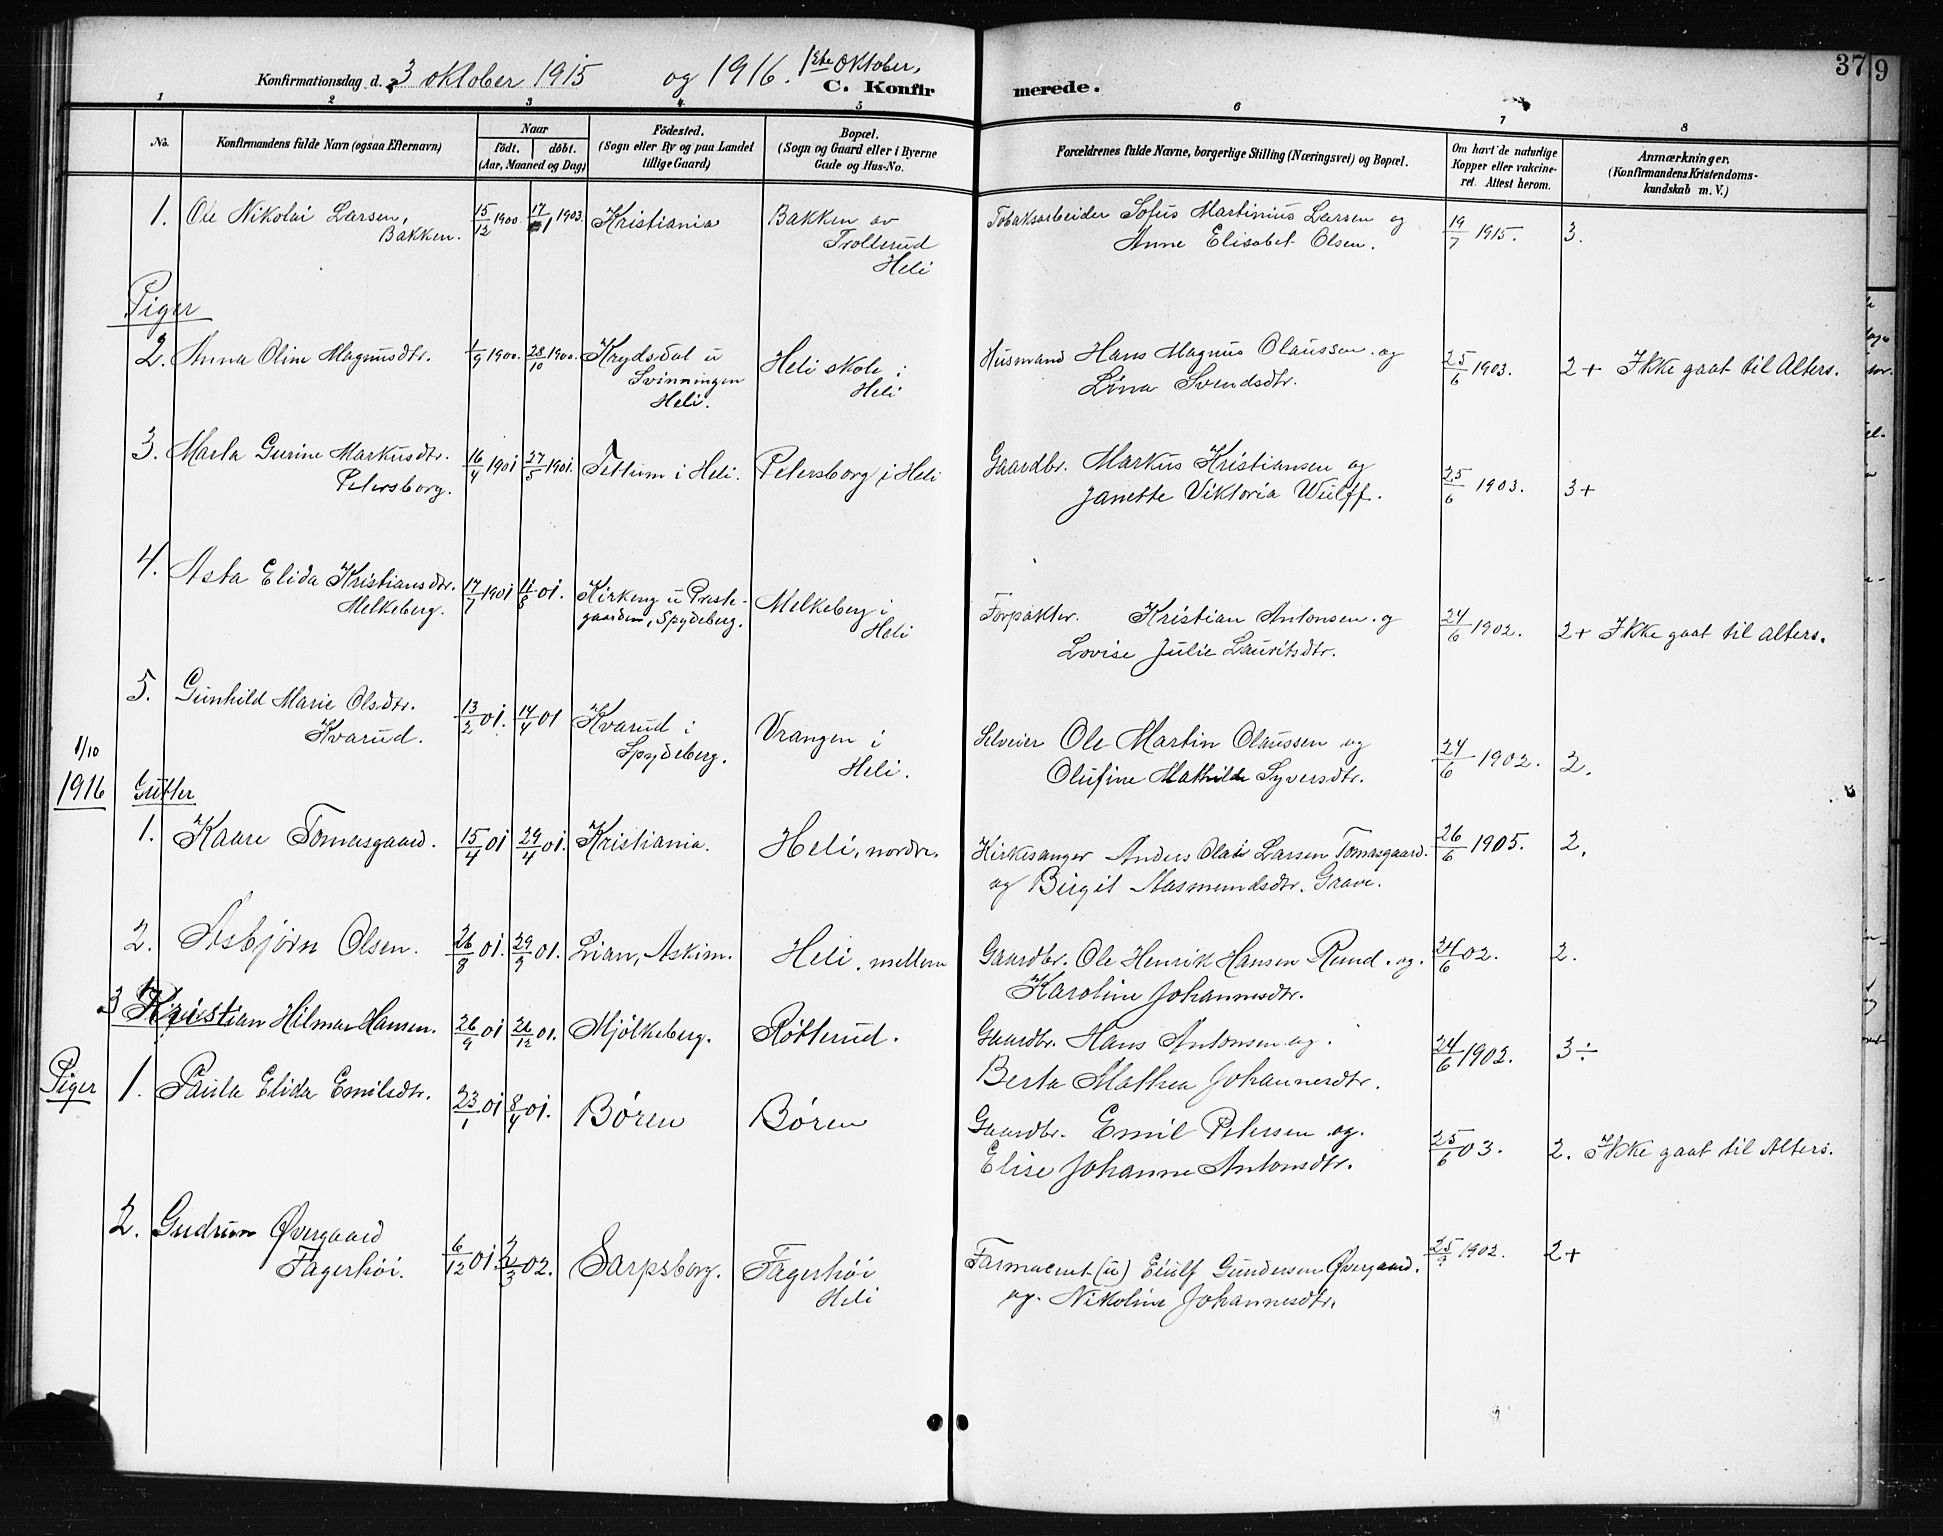 Konfirmationsdag d. 3 oktober 1915 og 1916. 1ste Oktober,
C. Konfirmerede.
37
9
1 2 3 4 5 6 7 8
No.
Konfirmandens fulde Navn (ogsaa Efternavn)
Naar
født. døbt.
(Aar, Maaned og Dag)
Födested.
(Sogn eller By og paa Landet
tillige Gaard)
Bopæl.
(Sogn og Gaard eller i Byerne
Gade og Hus-No.
Forældrenes fulde Navne, borgerlige Stilling (Næringsvei) og Bopæl.
Om havt de naturlige
Kopper eller vakcine-
ret. Attest herom.
Anmærkninger.
(Konfirmandens Kristendoms-
kundskab m. V.)
1. Ole Nikolai Larsen, 15/12 1900 17/1 1903. Kristiania Bakken av Tobaksarbeider Sofus Martinius Larsen og 19/7 1915. 3.
Bakken. Trollerud Anne Elisabet Olsen.
Heli
Piger
2. Anna Oline Magnusdtr. 1/9 1900. 28/10 1900. Krydsdal u Heli skole i Husmand Hans Magnus Olaussen og 25/6 1903. 2+ Ikke gaat til Alters.
Svinningen Heli Lina Svendsdtr.
Heli.
3. Marta Gurine Markusdtr. 16/4 1901 27/5 1901. Tettum i Heli. Petersborg i Heli Gaardbr. Markus Kristiansen og 25/6 1903. 3+
Petersborg. Janette Viktoria Wulff.
4. Asta Elida Kristiansdtr. 17/7 1901 11/8 01. Kirkeng u Preste- Melkeberg i Forpakter Kristian Antonsen og 24/6 1902. 2+ Ikke gaat til alters.
Melkeberg. gaarden, Spydeberg. Heli Lovise Julie Lauritsdtr.
5. Gunhild Marie Olsdtr. 13/2 01. 14/4 01 Kvarud i Vrangen i Selveier Ole Martin Olaussen og 24/6 1902. 2.
Kvarud. Spydeberg. Heli. Olufine Mathilde Syversdtr.
1/10
1916 Gutter
1. Kaare Tomasgaard. 15/4 01 29/4 01. Kristiania. Heli, nordre. Kirkesanger Anders Olai Larsen Tomasgaard. 26/6 1905. 2.
og Birgit Aasmundsdtr. Grave.
2. Asbjørn Olsen. 26/8 01. 29/9 01. Lian, Askim. Heli, mellem Gaardbr. Ole Henrik Hansen Rund. og. 24/6 02. 2.
Karoline Johannesdtr.
3 Kristian Hilmar Hansen. 26/9 01 26/12 01. Mjölkeberg. Røtterud. Gaardbr. Hans Antonsen og. 24/6 1902. 3÷
Berta Mathea Johannesdtr.
Piger 1. Paula Elida Emilsdtr. 23/1 01 8/4 01. Børen Børen Gaardbr. Emil Petersen og. 25/6 03. 2. Ikke gaat til Alters.
Elise Johanne Antonsdtr.
2. Gudrun Øvergaard 6/12 01. 2/3 02. Sarpsborg. Fagerhøi Farmaceut (u) Eiulf Gundersen Øvergaard. 25/9 1902. 2+
Fagerhøi. Heli og. Nikoline Johannesdtr.